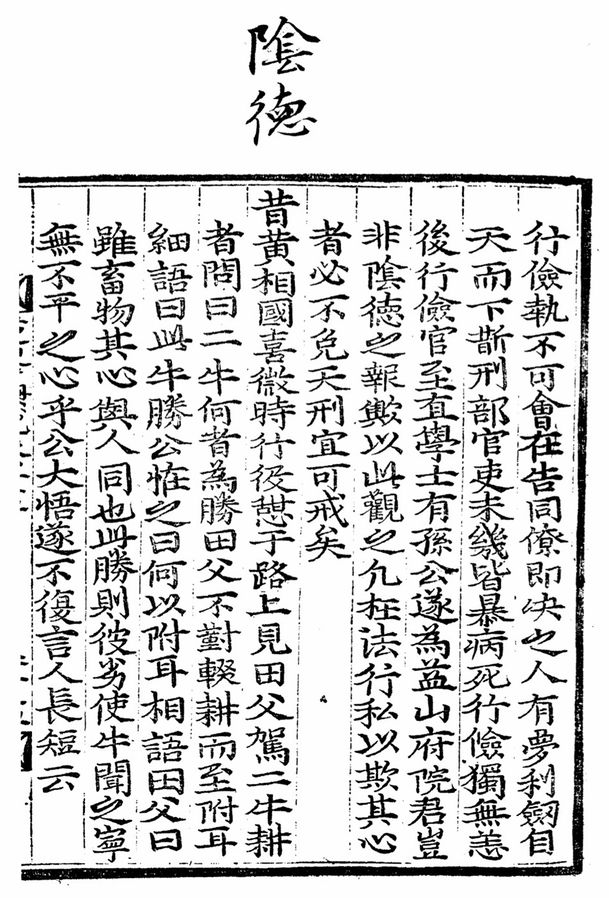 陰德
行儉執不可會在告同僚卽决之人有夢利劒自
天而下斮刑部官吏未幾皆暴病死行儉獨無恙
後行儉官至直學士有孫公遂為益山府院君豈
非陰德之報歟以此觀之凡枉法行私以欺其心
者必不免天刑宜可戒矣
昔黃相國喜微時行役憩于路上見田父駕二牛耕
者問曰二牛何者為勝田父不對輟耕而至附耳
細語曰此牛勝公恠之曰何以附耳相語田父曰
雖畜物其心與人同也此勝則彼劣使牛聞之寧
無不平之心乎公大悟遂不復言人長短云